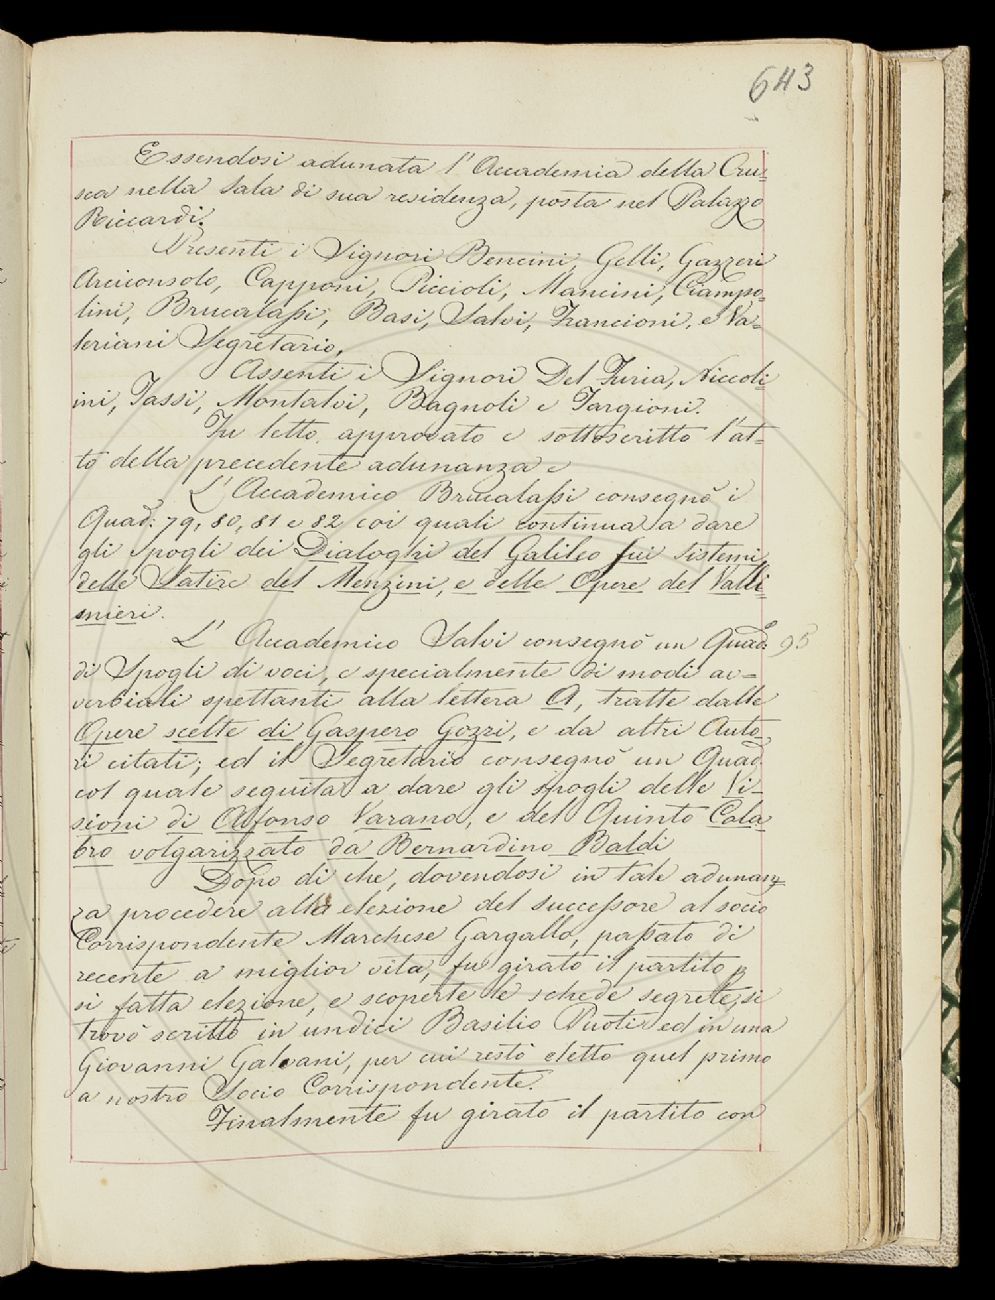 643
Essendosi adunata l'Accademia della Cru-
sca nella Sala di sua residenza, posta nel Palazzo
Riccardi.
Presenti i Signori Bencini, Gelli, Gazzeri
Arciconsolo, Capponi, Piccioli, Mancini, Ciampo-
lini, Brucalassi, Basi, Salvi, Francioni, e Va-
leriani Segretario,
Assenti i Signori Del Furia, Niccoli-
ni, Tassi, Montalvi, Bagnoli e Targioni.
Fu letto, approvato e sottoscritto l'at-
to della precedente adunanza e
L'Accademico Brucalassi consegnò i
Quad: 79, 80, 81 e 82 coi quali continua a dare
gli Spogli dei Dialoghi del Galileo sui Sistemi,
delle Satire del Menzini, e delle Opere del Valli-
snieri.
L'Accademico Salvi consegnò un Quad: 95
di Spogli di voci, e specialmente di modi av-
verbiali spettanti alla lettera A, tratte dalle
Opere scelte di Gaspero Gozzi, e da altri Auto-
ri citati; ed il Segretario consegnò un Quad.
col quale seguita a dare gli spogli delle Vi-
sioni di Alfonso Varano, e del Quinto Cala-
bro volgarizzato da Bernardino Baldi
Dopo di che, dovendosi in tale adunan-
za procedere alla elezione del successore al socio
Corrispondente Marchese Gargallo, passato di
recente a miglior vita, fu girato il partito p
si fatta elezione, e scoperte le schede segrete, si
trovò scritto in undici Basilio Puoti ed in una
Giovanni Galvani, per cui restò eletto quel primo
a nostro Socio Corrispondente.
Finalmente fu girato il partito con